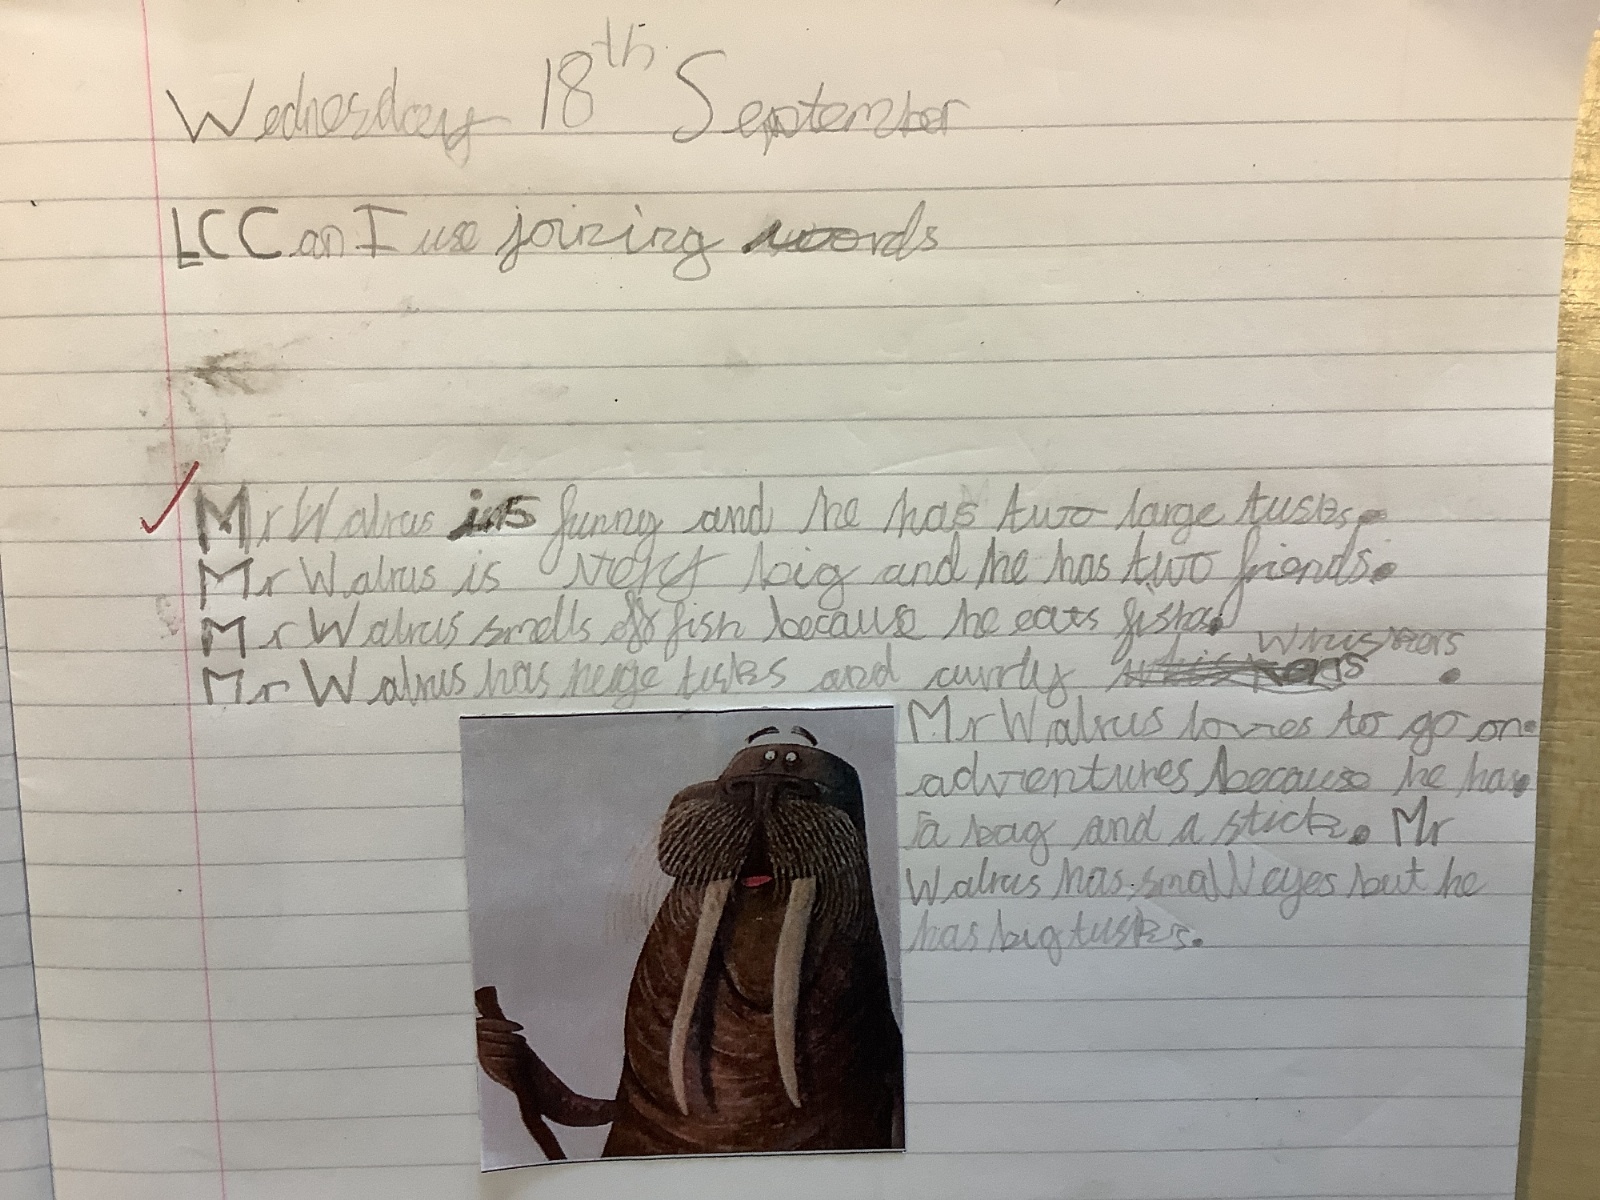 Wednesday 18th September
LC Can I use joining words
Mr Walrus is funny and he has two large tusks.
Mr Walrus is very big and he has two friends.
Mr Walrus smells of fish because he eats fishs.
Mr Walrus has huge tusks and currly whiskers.
Mr Walrus loves to go on.
adventures because he has.
a bag and a stick. Mr
Walrus has small eyes but he
has big tusks.